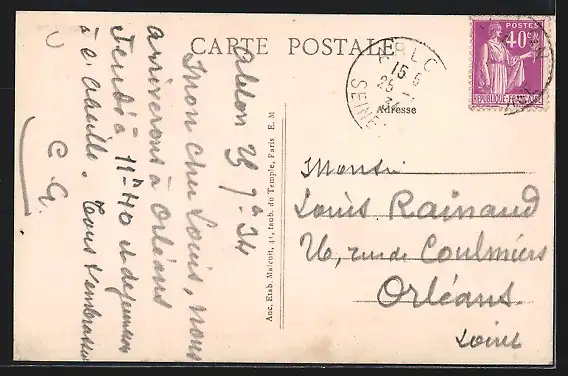 CARTE POSTALE
POSTES
40c
RÉPUBLIQUE FRANÇAISE
15 5
25
34
SEINE
Adresse
Anc. Etab. Malcuit, 41, faub. du Temple, Paris E. M
Ablon 25 7 34
Mon cher Louis, nous
arriverons à Orléans
Jeudi à 11h40 et déjeunerons
à l'Abeille. Tous t'embrassent
C. G.
Monsieur
Louis Rainaud
26, rue de Coulmiers
Orléans.
Loiret